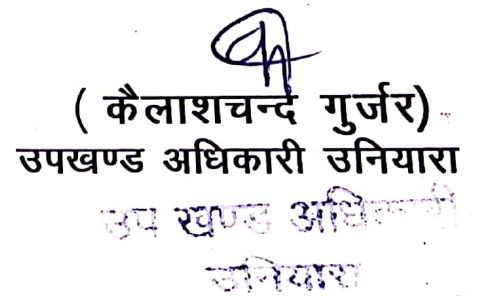 ( कैलाशचन्द गुर्जर)
उपखण्ड अधिकारी उनियारा
उप खण्ड अधिकारी
उनियारा